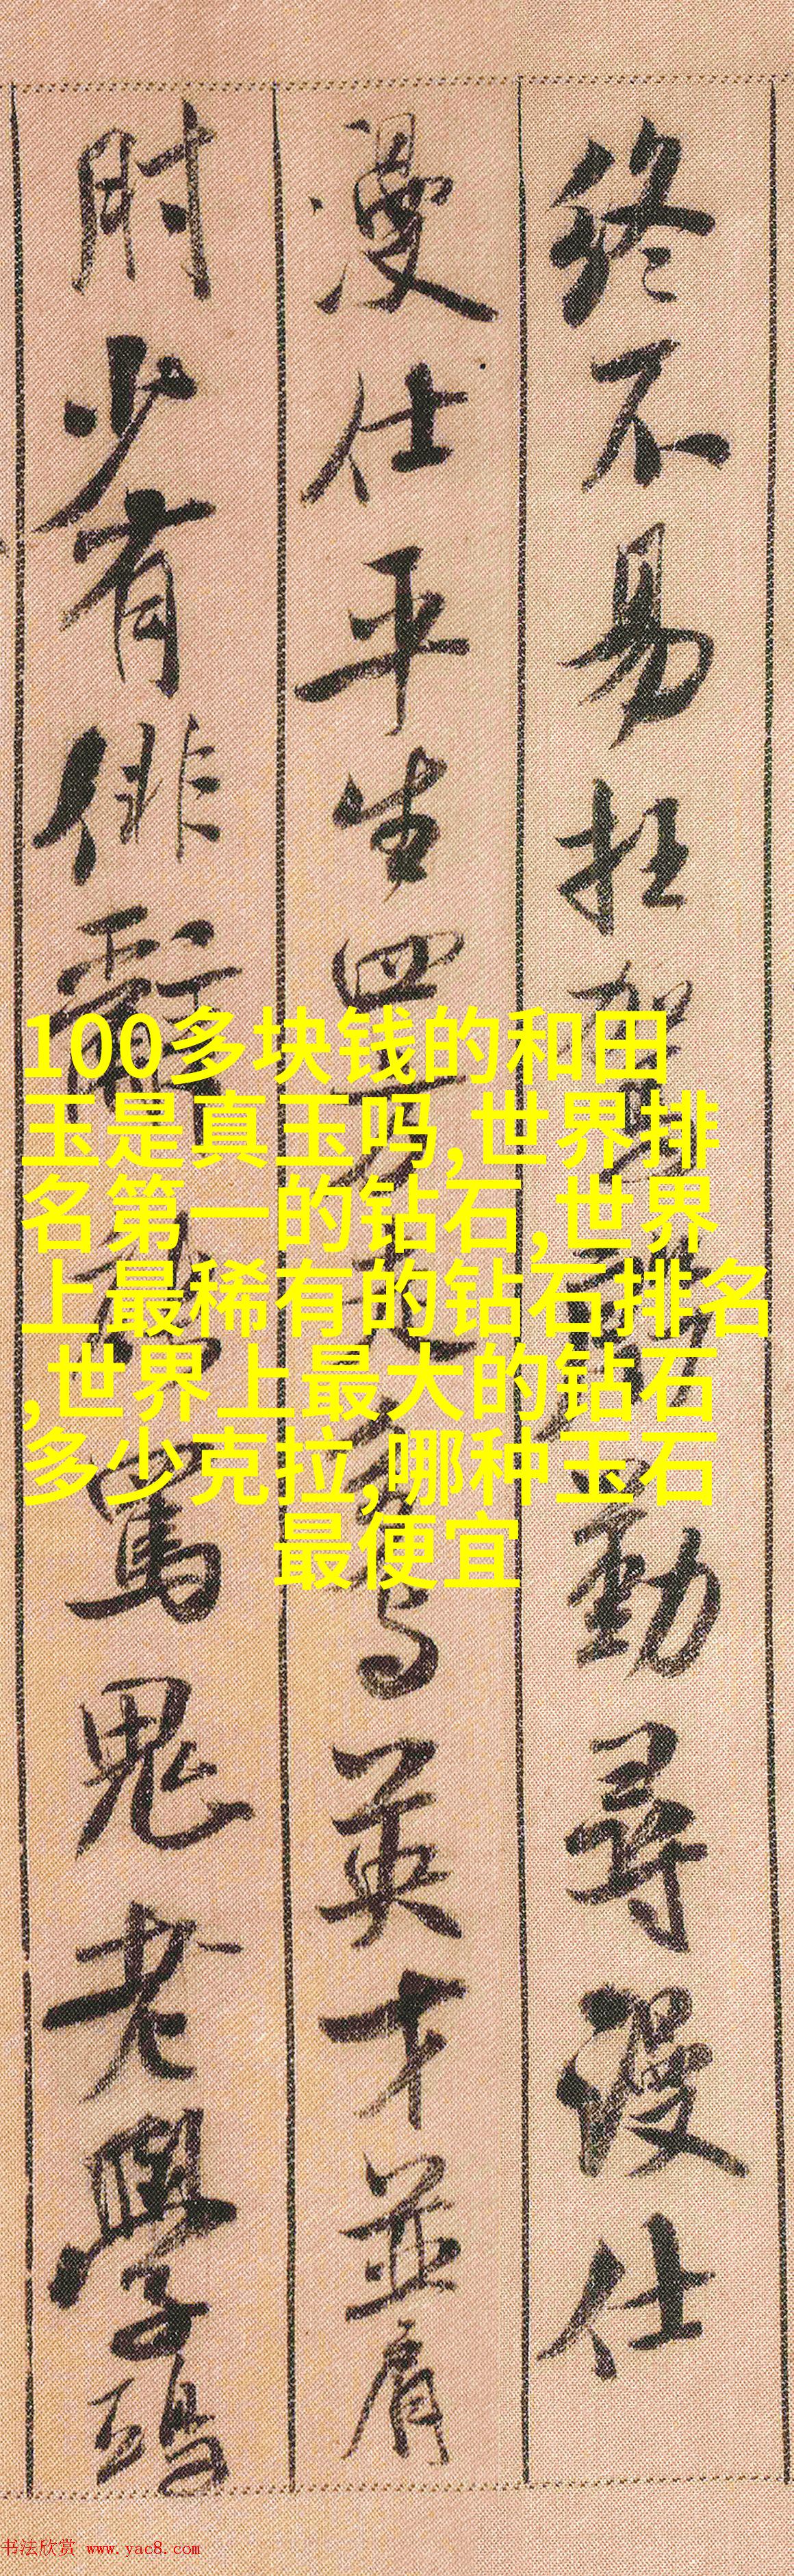 终不易抂
勤尋漫仕
漫仕平生四
英才並肩
肘少有俳
罵鬼老學
100多块钱的和田
玉是真玉吗,世界排
名第一的钻石,世界
上最稀有的钻石排名
,世界上最大的钻石
多少克拉,哪种玉石
最便宜
书法欣赏 www.yac8.com